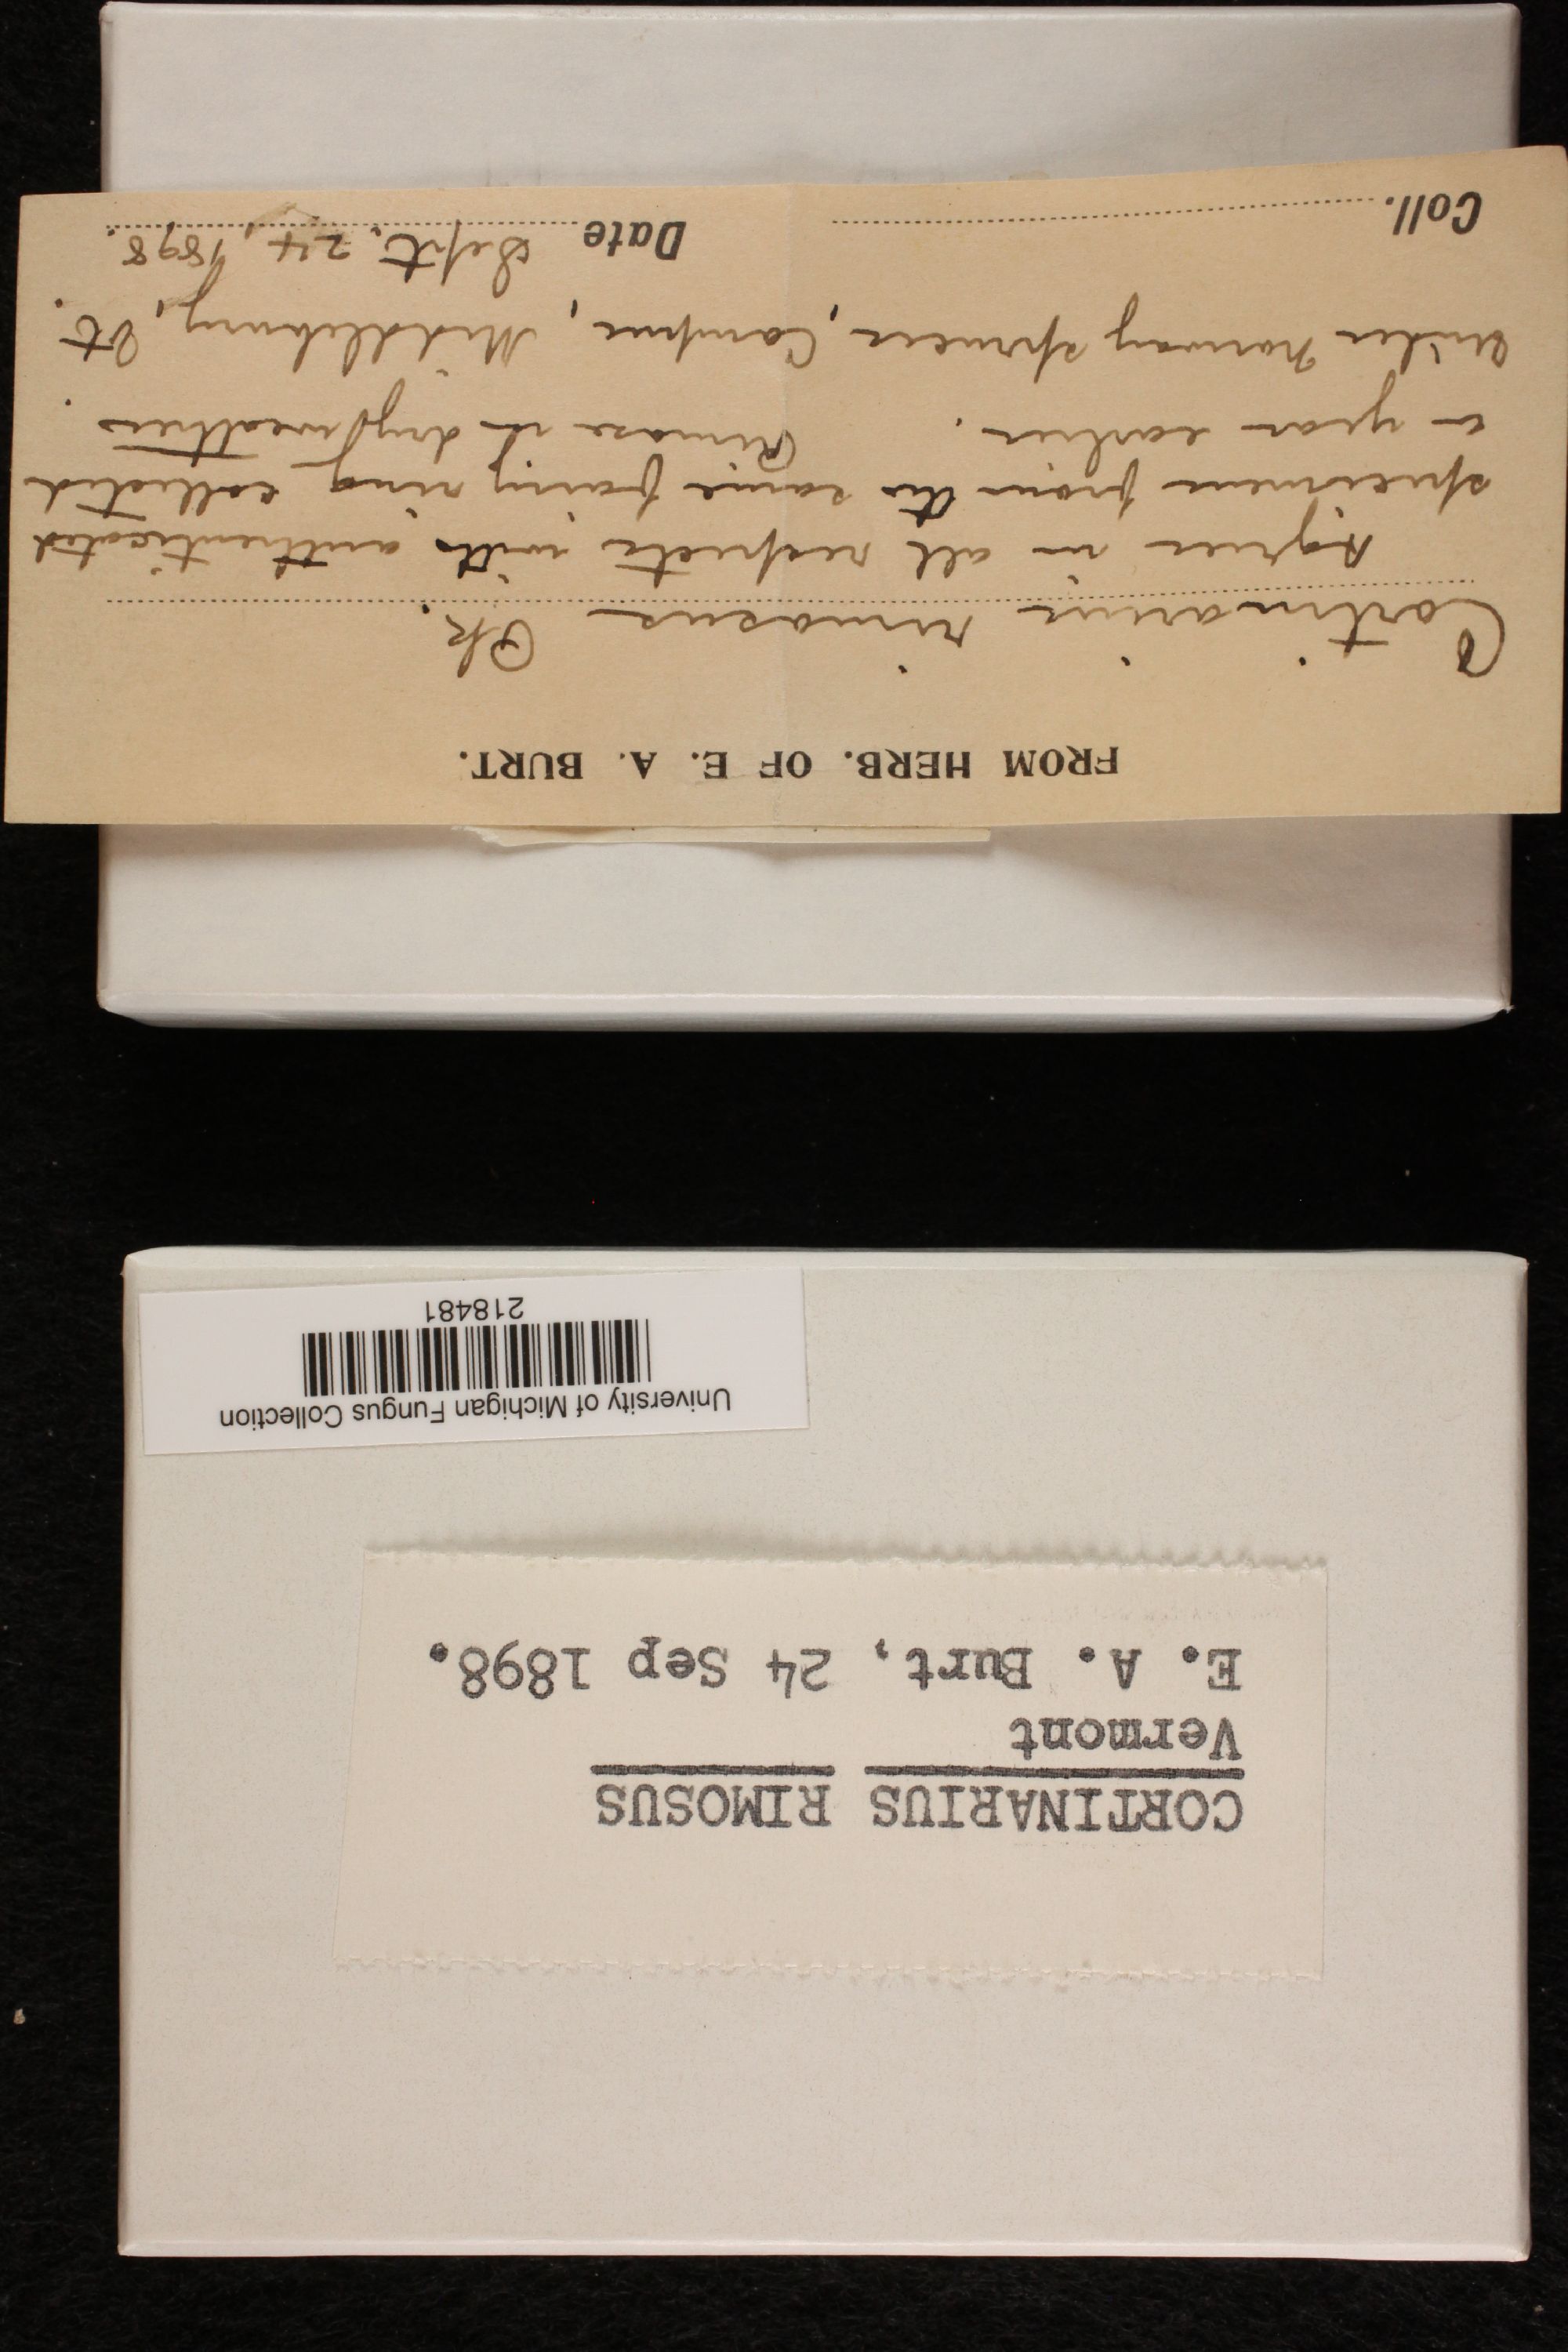 CORTINARIUS RIMOSUS
Vermont
E. A. Burt, 24 Sep 1898.
University of Michigan Fungus Collection
218481
FROM HERB. OF E. A. BURT.
Cortinarius rimosus Pk.
Agrees in all respects with authenticated
specimens from the same fairy ring collected
a year earlier. Rimose in dry weather.
Under Norway spruces, Campus, Middlebury, Vt.
Coll. Date Sept. 24, 1898.